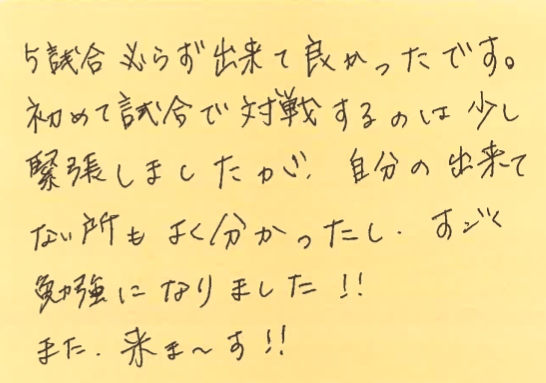 5試合 必らず出来て良かったです。
初めて試合で対戦するのは少し
緊張しましたが、自分の出来て
ない所もよく分かったし、すごく
勉強になりました!!
また、来ま～す!!